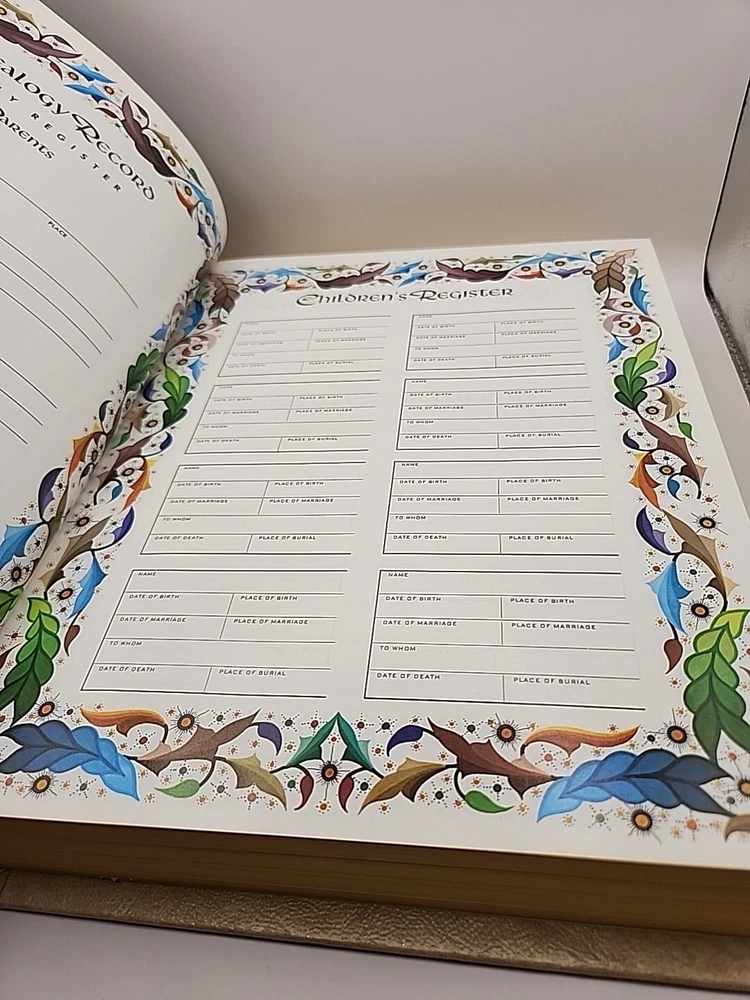 ealogy Record
ly Register
Parents
PLACE
Children's Register
NAME
DATE OF BIRTH PLACE OF BIRTH
DATE OF MARRIAGE PLACE OF MARRIAGE
TO WHOM
DATE OF DEATH PLACE OF BURIAL
NAME
DATE OF BIRTH PLACE OF BIRTH
DATE OF MARRIAGE PLACE OF MARRIAGE
TO WHOM
DATE OF DEATH PLACE OF BURIAL
NAME
DATE OF BIRTH PLACE OF BIRTH
DATE OF MARRIAGE PLACE OF MARRIAGE
TO WHOM
DATE OF DEATH PLACE OF BURIAL
NAME
DATE OF BIRTH PLACE OF BIRTH
DATE OF MARRIAGE PLACE OF MARRIAGE
TO WHOM
DATE OF DEATH PLACE OF BURIAL
NAME
DATE OF BIRTH PLACE OF BIRTH
DATE OF MARRIAGE PLACE OF MARRIAGE
TO WHOM
DATE OF DEATH PLACE OF BURIAL
NAME
DATE OF BIRTH PLACE OF BIRTH
DATE OF MARRIAGE PLACE OF MARRIAGE
TO WHOM
DATE OF DEATH PLACE OF BURIAL
NAME
DATE OF BIRTH PLACE OF BIRTH
DATE OF MARRIAGE PLACE OF MARRIAGE
TO WHOM
DATE OF DEATH PLACE OF BURIAL
NAME
DATE OF BIRTH PLACE OF BIRTH
DATE OF MARRIAGE PLACE OF MARRIAGE
TO WHOM
DATE OF DEATH PLACE OF BURIAL